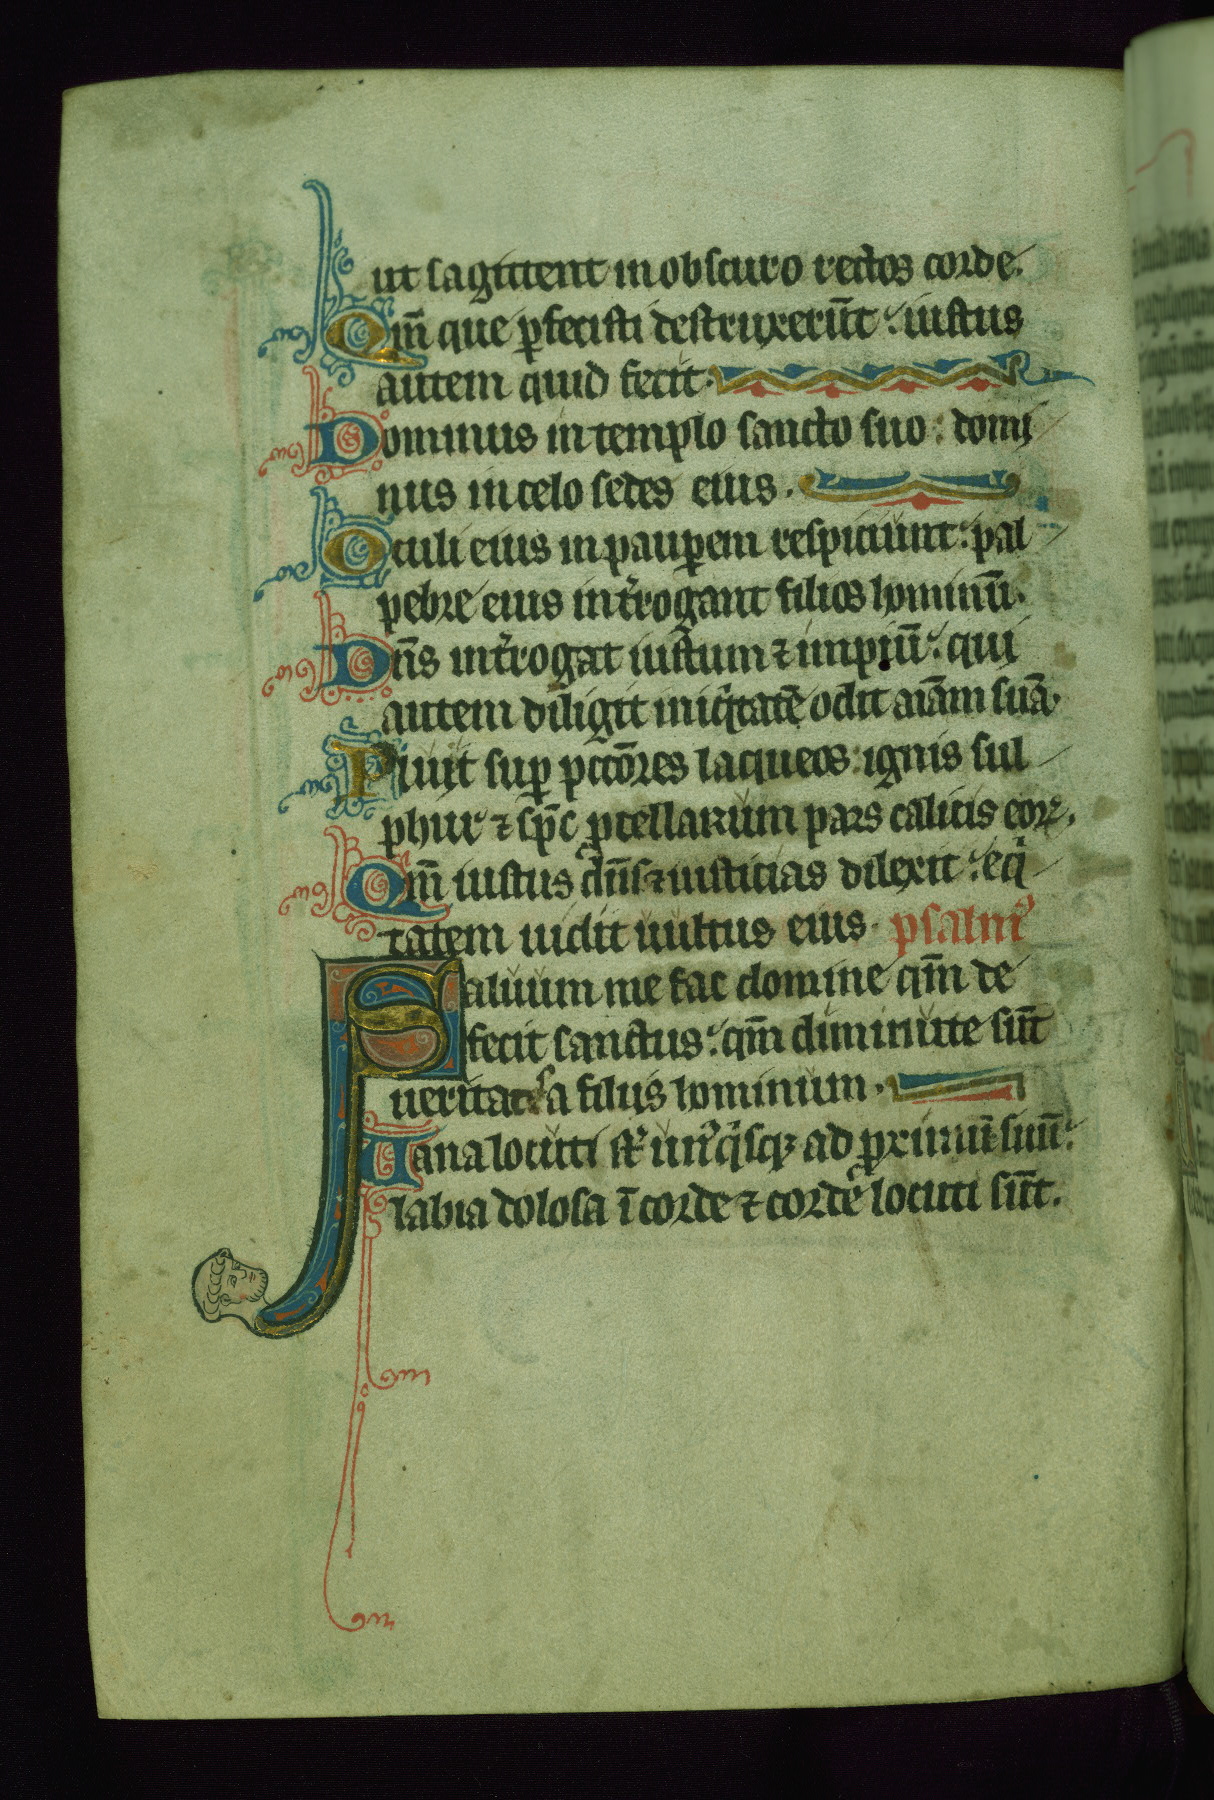 ut sagittent in obscuro rectos corde.
Qm̄ que ꝑfecisti destruxerūt : iustus
autem quid fecit.
Dominus in templo sancto suo : domi
nus in celo sedes eius.
Oculi eius in pauꝑem respiciunt : pal
pebre eius int̾rogant filios hominū.
Dn̄s int̾rogat iustum ⁊ impiū : qui
autem diligit iniq̇tatē odit aīam suā.
Pluit suꝑ pctōres laqueos : ignis sul
phur ⁊ sp̄c ꝓcellarum pars calicis eoꝝ.
Qm̄ iustus dn̄s ⁊ iusticias dilexit : eq̇
tatem uidit uultus eius. psalm᷒
Saluum me fac domine qm̄ de
fecit sanctus : qm̄ diminute sūt
ueritates a filiis hominum.
Uana locuti st̄ unꝰq̇sqꝫ ad ꝓximū suū :
labia dolosa ī corde ⁊ corde locuti sūt.